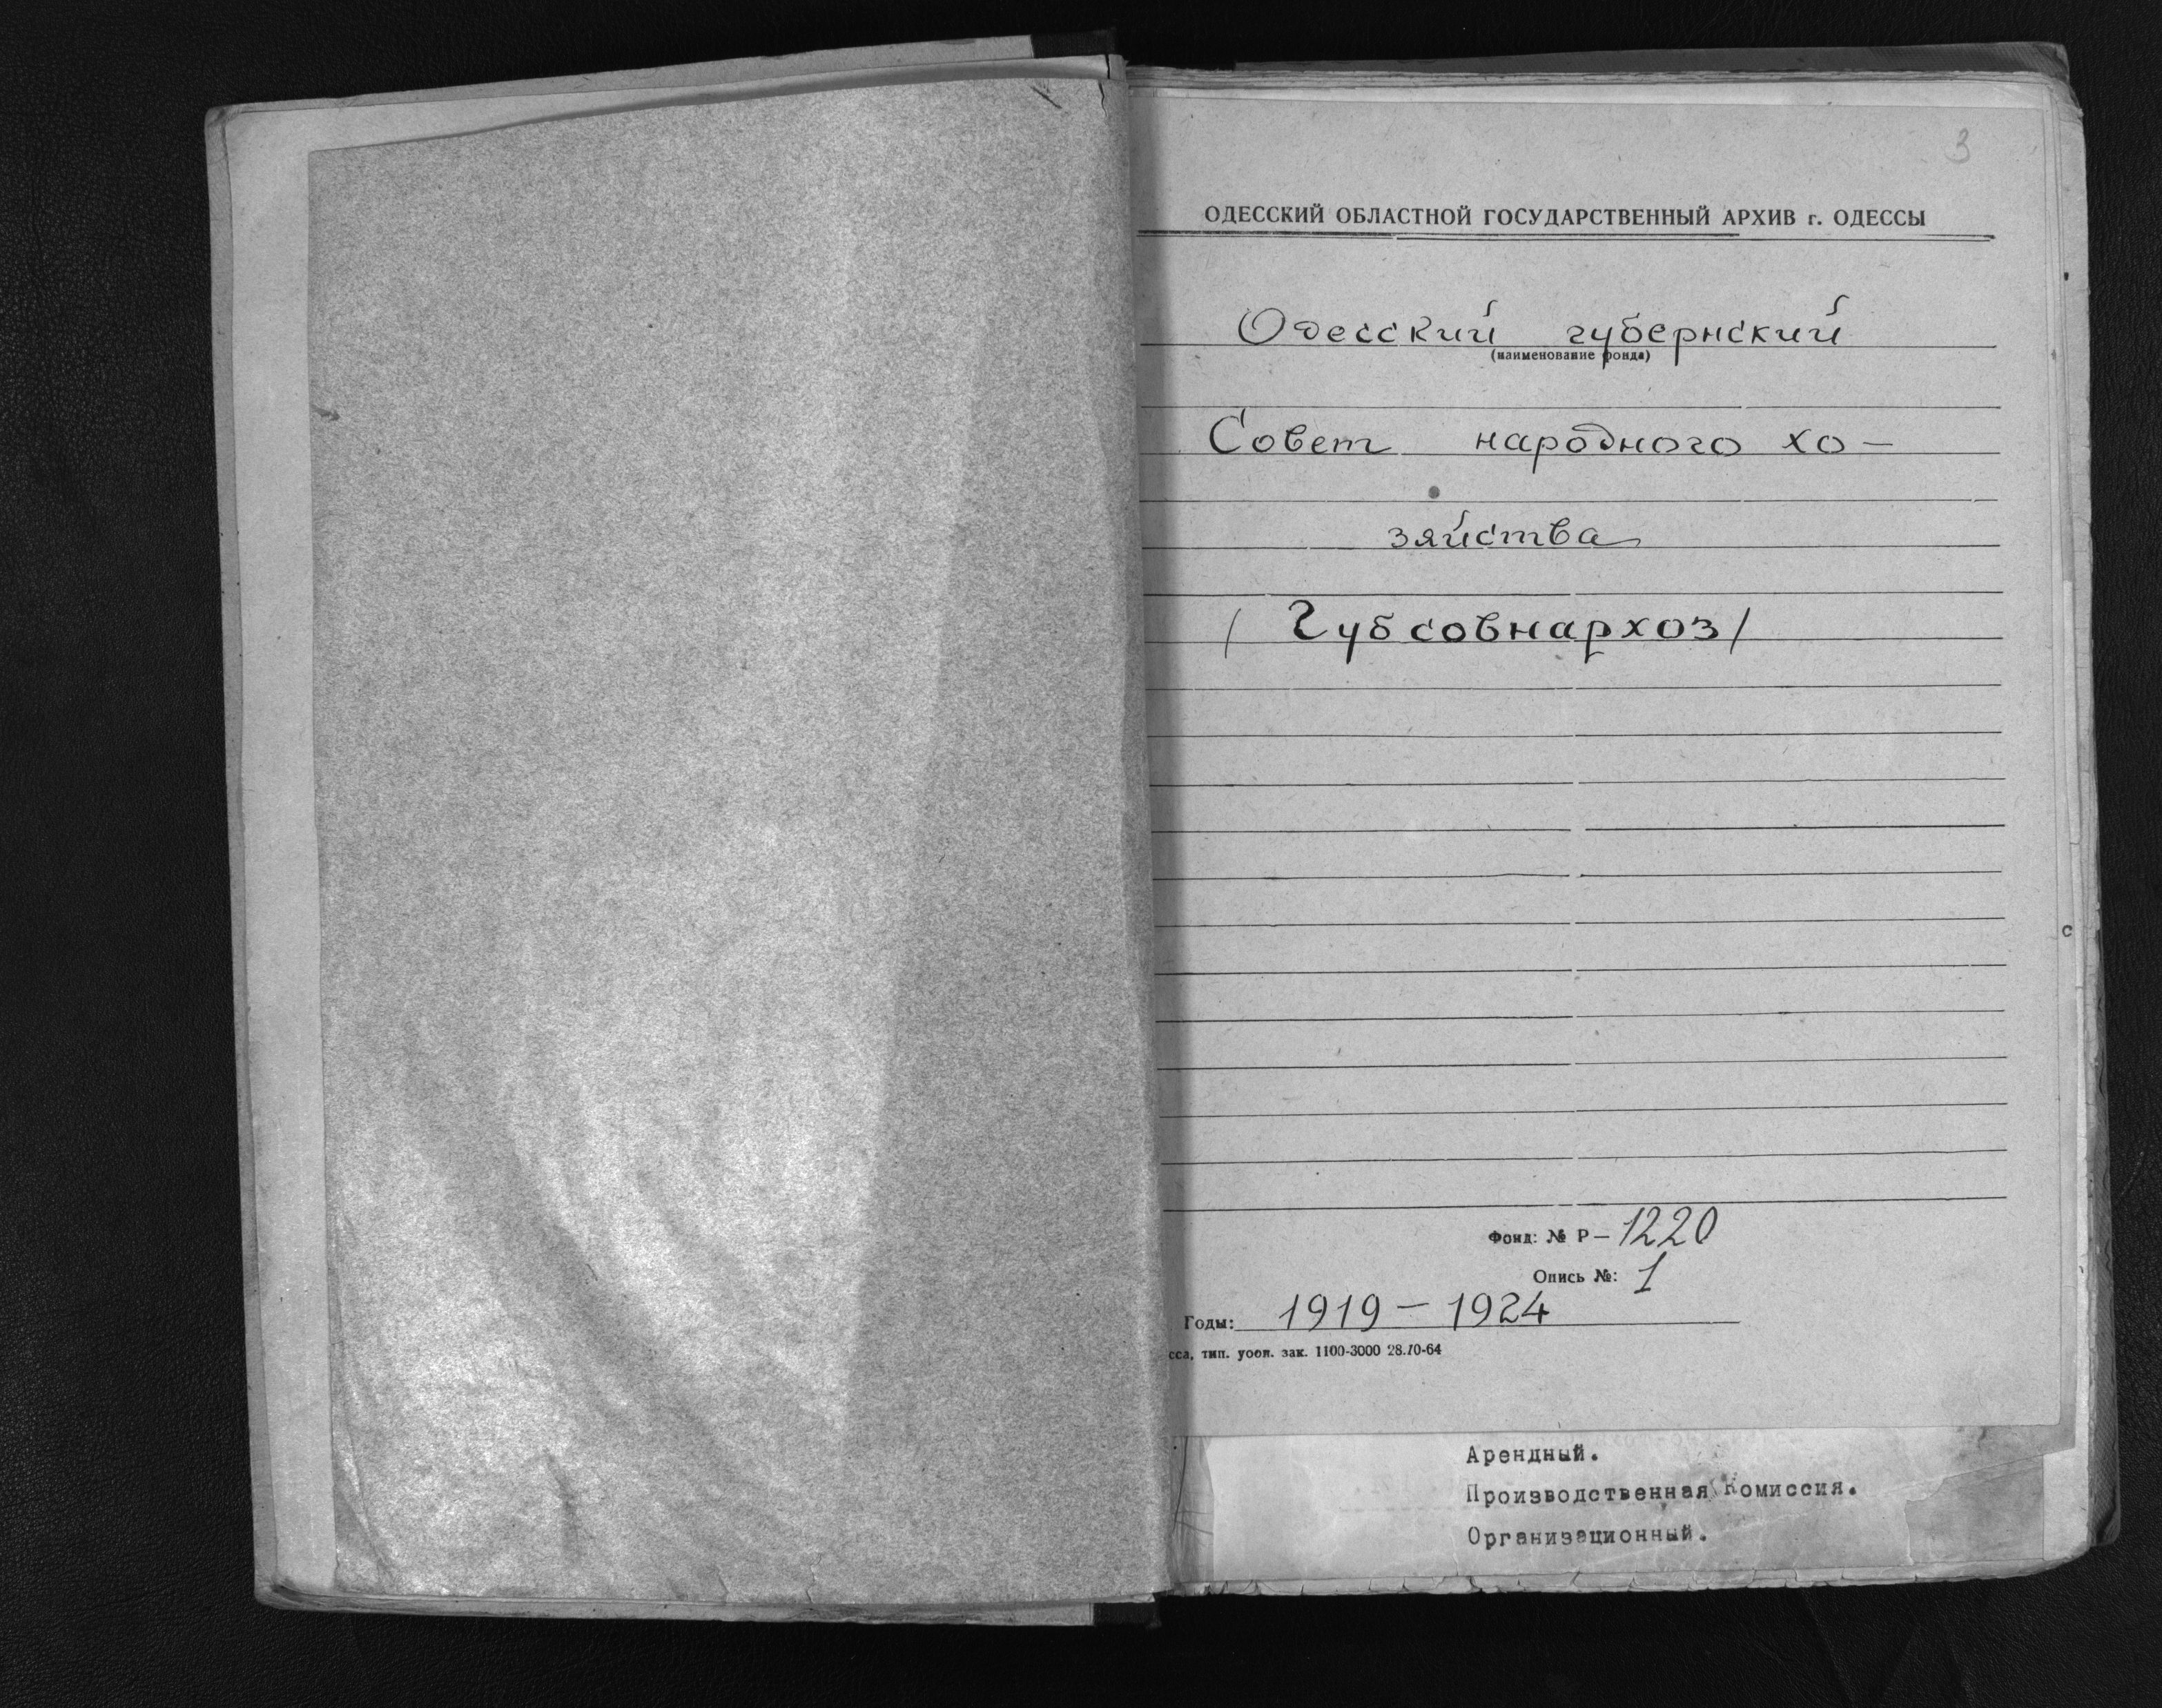 3
ОДЕССКИЙ ОБЛАСТНОЙ ГОСУДАРСТВЕННЫЙ АРХИВ г. ОДЕССЫ
Одесский губернский
(наименование фонда)
Совет народного хо-
зяйства
/ Губсовнархоз/
Фонд: № Р-1220
Опись №: 1
Годы: 1919-1924
тип. зак. 1100-3000 28.10-64
Арендный.
Производственная Комиссия.
Организационный.